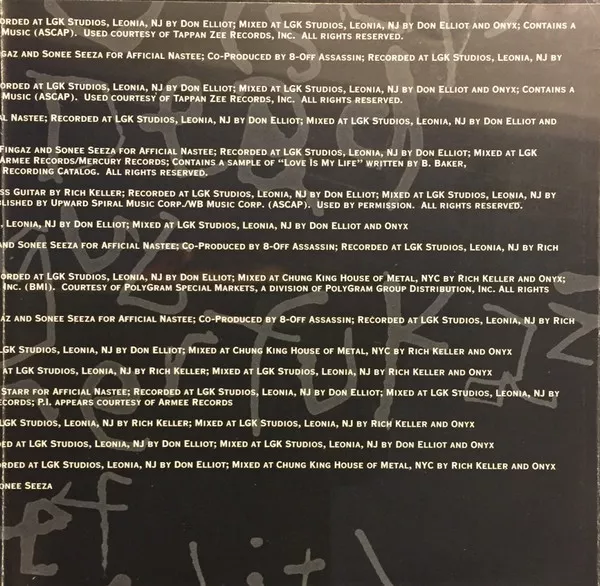 orded at LGK Studios, Leonia, NJ by Don Elliot; Mixed at LGK Studios, Leonia, NJ by Don Elliot and Onyx; Contains a
Music (ASCAP). Used courtesy of Tappan Zee Records, Inc. All rights reserved.
gaz and Sonee Seeza for Afficial Nastee; Co-Produced by 8-Off Assassin; Recorded at LGK Studios, Leonia, NJ by
orded at LGK Studios, Leonia, NJ by Don Elliot; Mixed at LGK Studios, Leonia, NJ by Don Elliot and Onyx; Contains a
Music (ASCAP). Used courtesy of Tappan Zee Records, Inc. All rights reserved.
al Nastee; Recorded at LGK Studios, Leonia, NJ by Don Elliot; Mixed at LGK Studios, Leonia, NJ by Don Elliot and
Fingaz and Sonee Seeza for Afficial Nastee; Recorded at LGK Studios, Leonia, NJ by Don Elliot; Mixed at LGK
Armee Records/Mercury Records; Contains a sample of "Love Is My Life" written by B. Baker,
Recording Catalog. All rights reserved.
ss Guitar by Rich Keller; Recorded at LGK Studios, Leonia, NJ by Don Elliot; Mixed at LGK Studios, Leonia, NJ by
blished by Upward Spiral Music Corp./WB Music Corp. (ASCAP). Used by permission. All rights reserved.
, Leonia, NJ by Don Elliot; Mixed at LGK Studios, Leonia, NJ by Don Elliot and Onyx
and Sonee Seeza for Afficial Nastee; Co-Produced by 8-Off Assassin; Recorded at LGK Studios, Leonia, NJ by Rich
orded at LGK Studios, Leonia, NJ by Don Elliot; Mixed at Chung King House of Metal, NYC by Rich Keller and Onyx;
Inc. (BMI). Courtesy of PolyGram Special Markets, a division of PolyGram Group Distribution, Inc. All rights
az and Sonee Seeza for Afficial Nastee; Co-Produced by 8-Off Assassin; Recorded at LGK Studios, Leonia, NJ by Rich
LGK Studios, Leonia, NJ by Don Elliot; Mixed at Chung King House of Metal, NYC by Rich Keller and Onyx
at LGK Studios, Leonia, NJ by Rich Keller; Mixed at LGK Studios, Leonia, NJ by Rich Keller and Onyx
Starr for Afficial Nastee; Recorded at LGK Studios, Leonia, NJ by Don Elliot; Mixed at LGK Studios, Leonia, NJ by
ecords; P.I. appears courtesy of Armee Records
LGK Studios, Leonia, NJ by Rich Keller; Mixed at LGK Studios, Leonia, NJ by Rich Keller and Onyx
ed at LGK Studios, Leonia, NJ by Don Elliot; Mixed at LGK Studios, Leonia, NJ by Don Elliot and Onyx
orded at LGK Studios, Leonia, NJ by Don Elliot; Mixed at Chung King House of Metal, NYC by Rich Keller and Onyx
onee Seeza